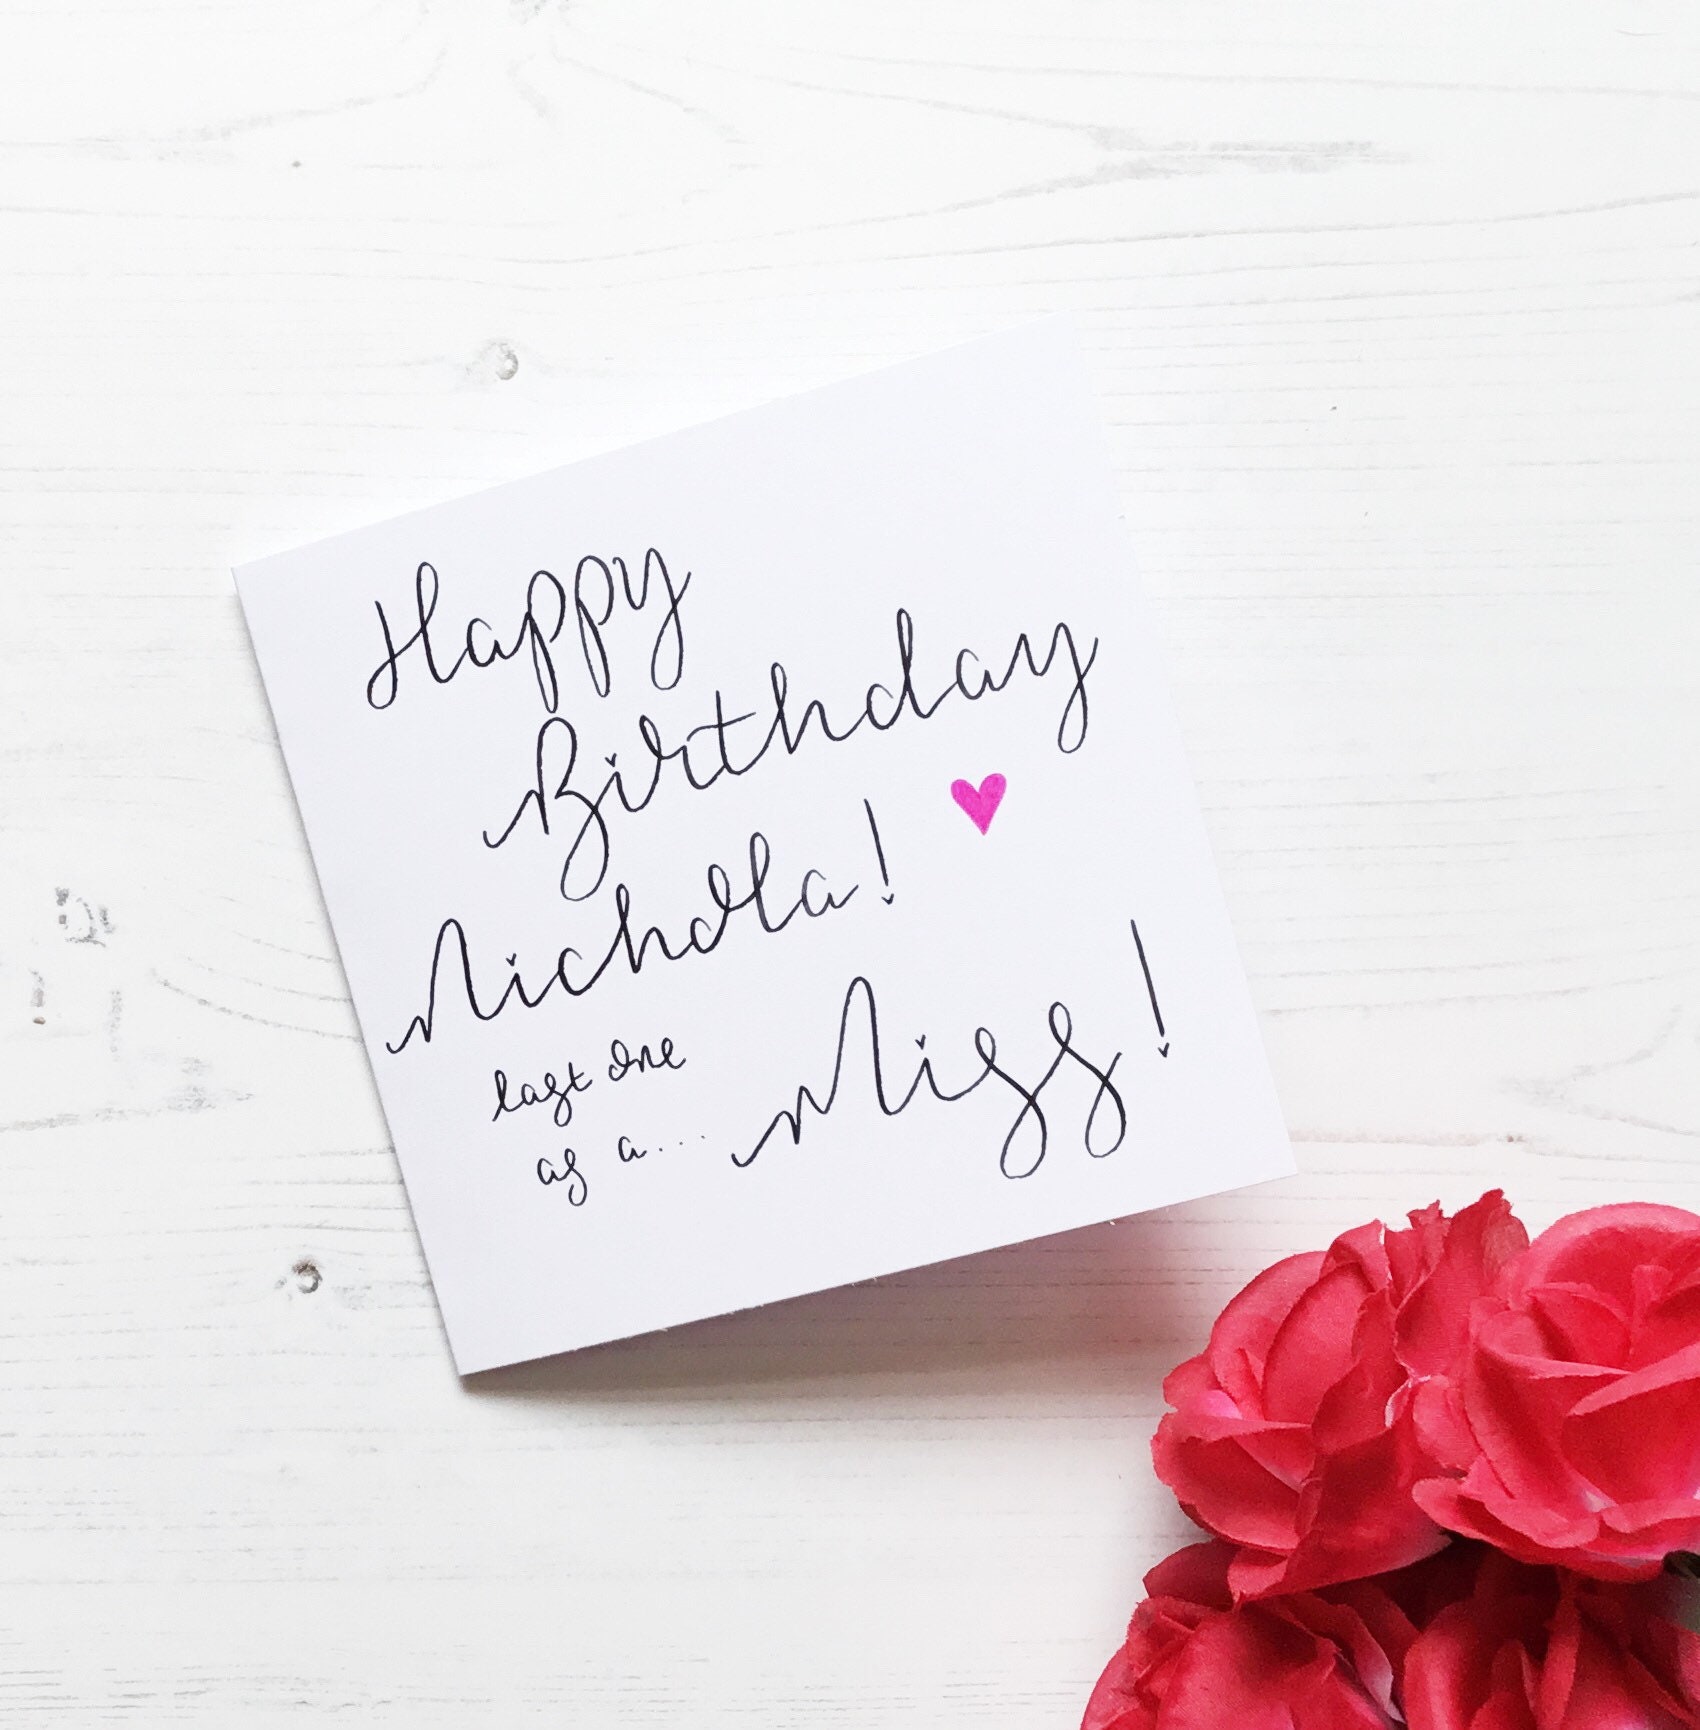 Happy
Birthday
Nichola!
last one
as a... Miss!